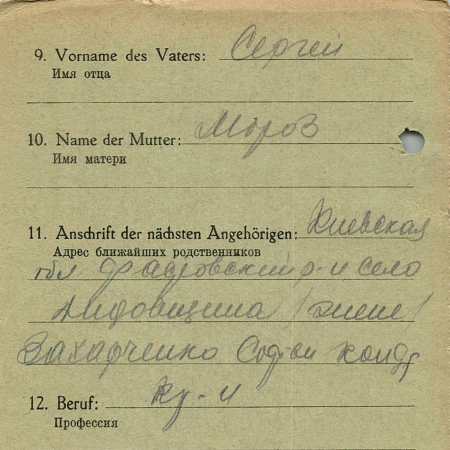 9. Vorname des Vaters: Сергей
Имя отца
10. Name der Mutter: Мороз
Имя матери
11. Anschrift der nächsten Angehörigen: Киевская
Адрес ближайших родственников
обл. р-н село
Дидовщина
Захарченко Софьи
12. Beruf: кр-н
Профессия